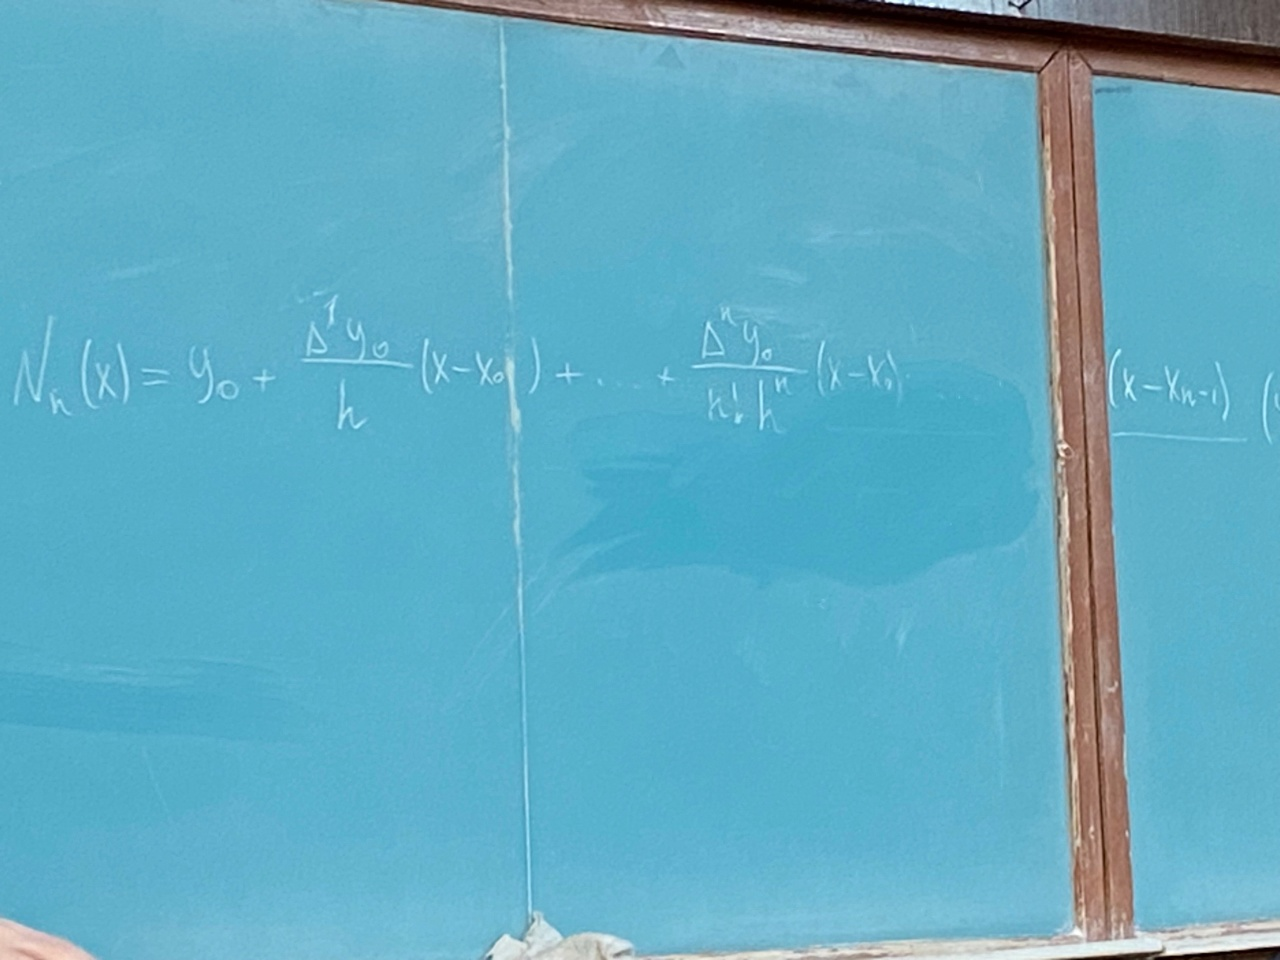 Nₙ(x) = y₀ + Δ¹y₀/h (x-x₀) + .... + Δⁿy₀/n!hⁿ (x-x₀) .... (x-xₙ₋₁) (